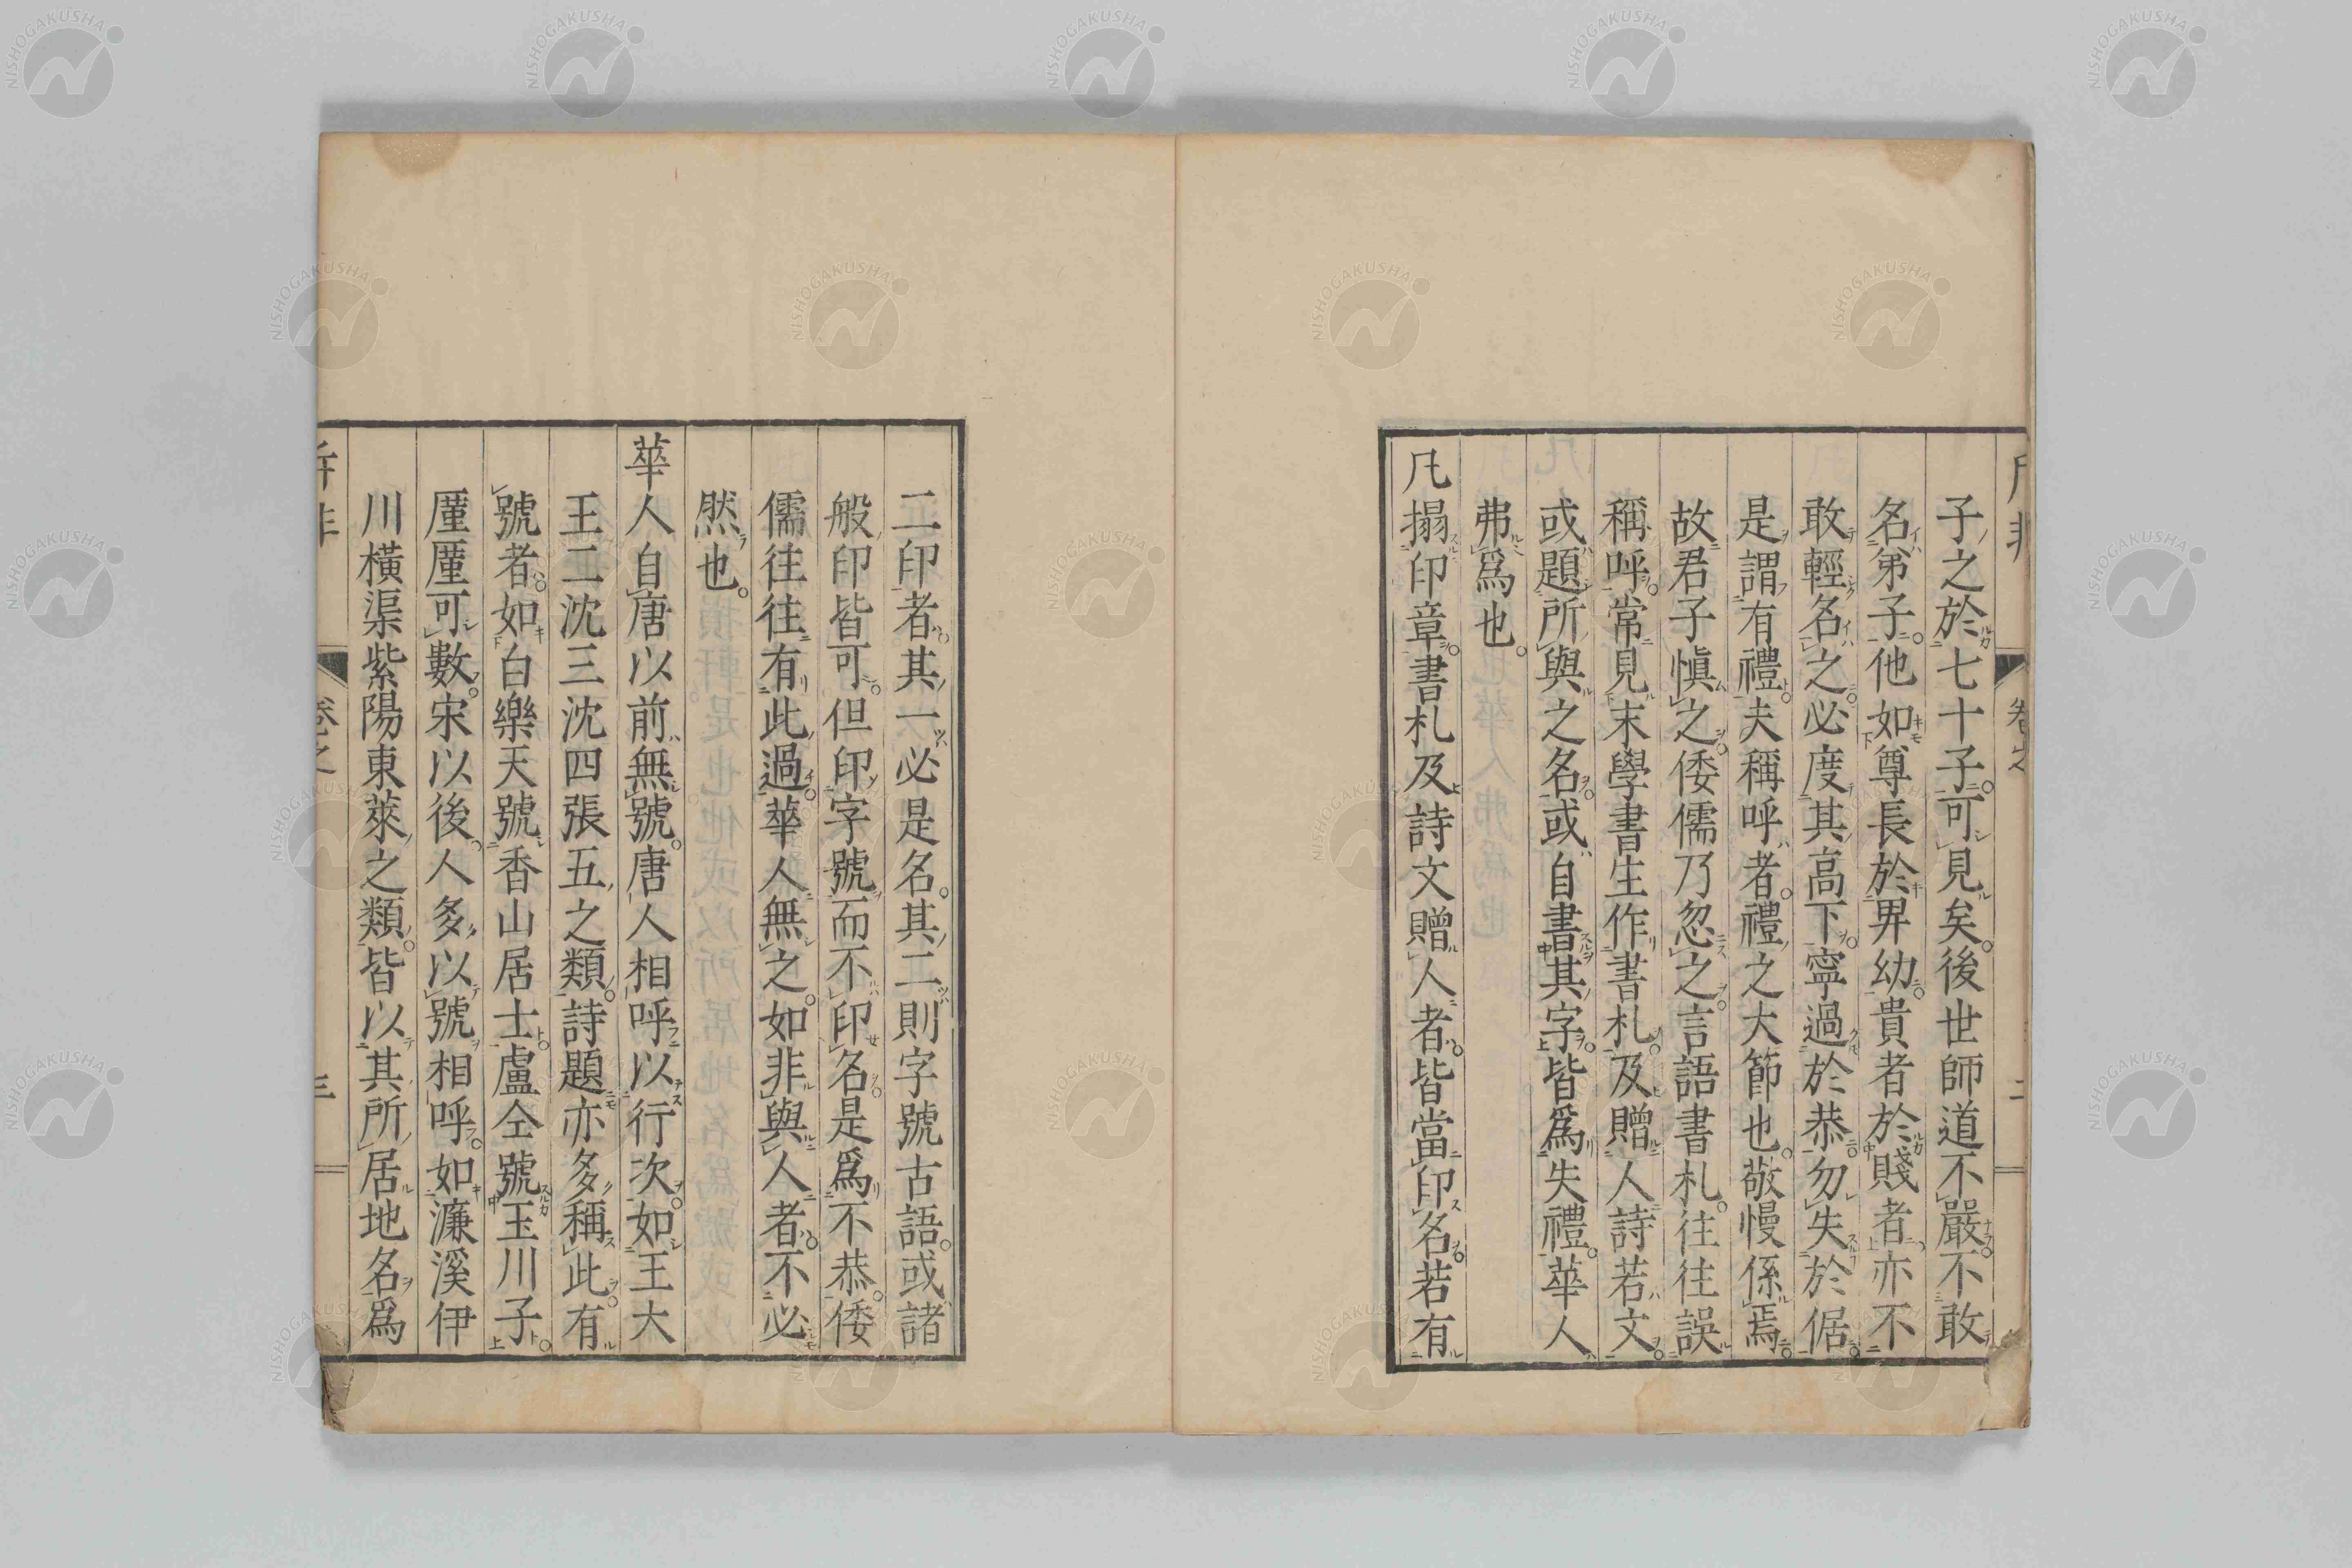 子之於七十子。可見矣。後世師道不嚴。不敢
名弟子。他如尊長於畀幼。貴者於賤者。亦不
敢輕名之。必度其高下。寧過於恭。勿失於倨。
是謂有禮。夫稱呼者。禮之大節也。敬慢係焉。
故君子愼之。倭儒乃忽之。言語書札。往往誤
稱呼。常見末學書生作書札。及贈人詩若文。
或題所與之名。或自書其字。皆爲失禮。華人
弗爲也。
凡搨印章。書札及詩文贈人者。皆當印名。若有
二印者。其一必是名。其二則字號古語。或諸
般印皆可。但印字號而不印名。是爲不恭。倭
儒往往有此過。華人無之。如非與人者。不必
然也。
華人自唐以前無號。唐人相呼以行次。如王大
王二沈三沈四張五之類。詩題亦多稱此。有
號者。如白樂天號香山居士。盧仝號玉川子。
厪厪可數。宋以後。人多以號相呼。如濂溪伊
川橫渠紫陽東萊之類。皆以其所居地名爲
卷之
三